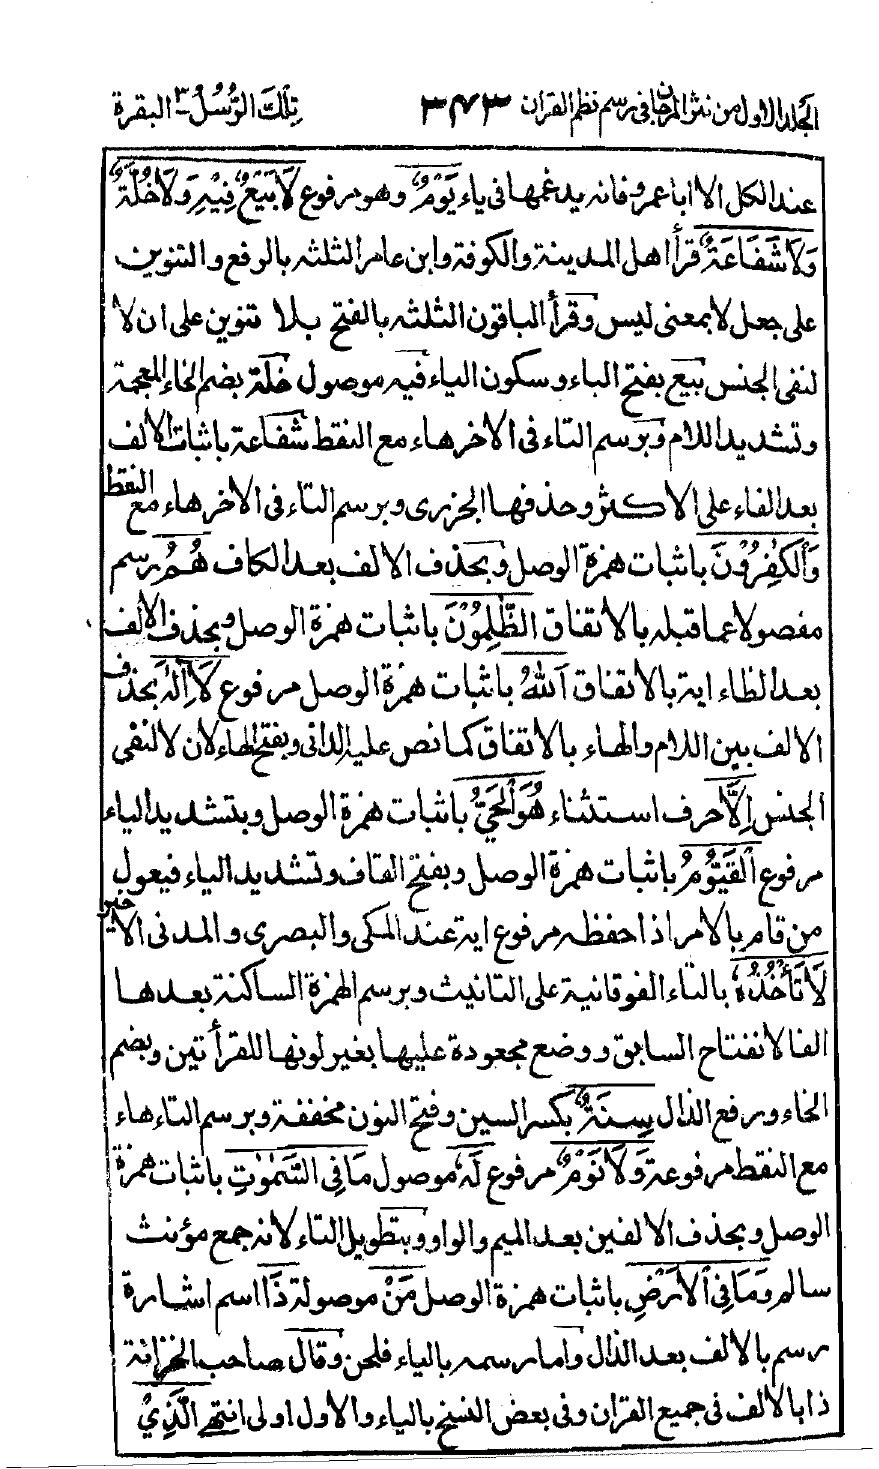 المجلد الاول من نثر المرجان في رسم نظم القران ٣٤٣ تِلْكَ الرُّسُلُ ٣ البقرة
عند الكل الا ابا عمرو فانه يدغمها في ياء يَوْمٌ وهو مرفوع لَا بَيْعٌ فِيْهِ وَلَا خُلَّةٌ
وَلَا شَفَاعَةٌ قرأ اهل المدينة والكوفة وابن عامر الثلثه بالرفع والتنوين
على جعل لا بمعنى ليس وقرأ الباقون الثلثه بالفتح بلا تنوين على ان لا
لنفى الجنس بيع بفتح الباء وسكون الياء فيه موصول خلة بضم الخاء المعجمة
وتشديد اللام وبرسم التاء في الاخر هاء مع النقط شفاعة باثبات الالف
بعد الفاء على الاكثر وحذفها الجزرى وبرسم التاء في الاخر هاء مع النقط
وَالْكٰفِرُوْنَ باثبات همزة الوصل وبحذف الالف بعد الكاف هُمُ رسم
مفصولا عما قبله بالاتفاق الظّٰلِمُوْنَ باثبات همزة الوصل وبحذف الالف
بعد الظاء اية بالاتفاق اَللّٰهُ باثبات همزة الوصل مرفوع لَا اِلٰهَ بحذف
الالف بين اللام والهاء بالاتفاق كما نص عليه الدانى وبفتح الهاء لان لا لنفى
الجنس اِلَّا حرف استثناء هُوَ الْحَيُّ باثبات همزة الوصل وبتشديد الياء
مرفوع الْقَيُّوْمُ باثبات همزة الوصل وبفتح القاف وتشديد الياء فيعول
من قام بالامر اذا حفظه مرفوع اية عند المكى والبصرى والمدنى الاخير
لَا تَأْخُذُهٗ بالتاء الفوقانية على التانيث وبرسم الهمزة الساكنة بعدها
الفا لانفتاح السابق ووضع مجعودة عليها بغير لونها للقرأتين وبضم
الخاء ورفع الذال سِنَةٌ بكسر السين وفتح النون مخففة وبرسم التاء هاء
مع النقط مرفوعة وَلَا نَوْمٌ مرفوع لَهٗ موصول مَا فِى السَّمٰوٰتِ باثبات همزة
الوصل وبحذف الالفين بعد الميم والواو وبتطويل التاء لانه جمع مؤنث
سالم وَمَا فِى الْاَرْضِ باثبات همزة الوصل مَنْ موصولة ذَا اسم اشارة
رسم بالالف بعد الذال واما رسمه بالياء فلحن وقال صاحب الخزانة
ذا بالالف في جميع القران وفى بعض النسخ بالياء والاول اولى انتهى الَّذِيْ